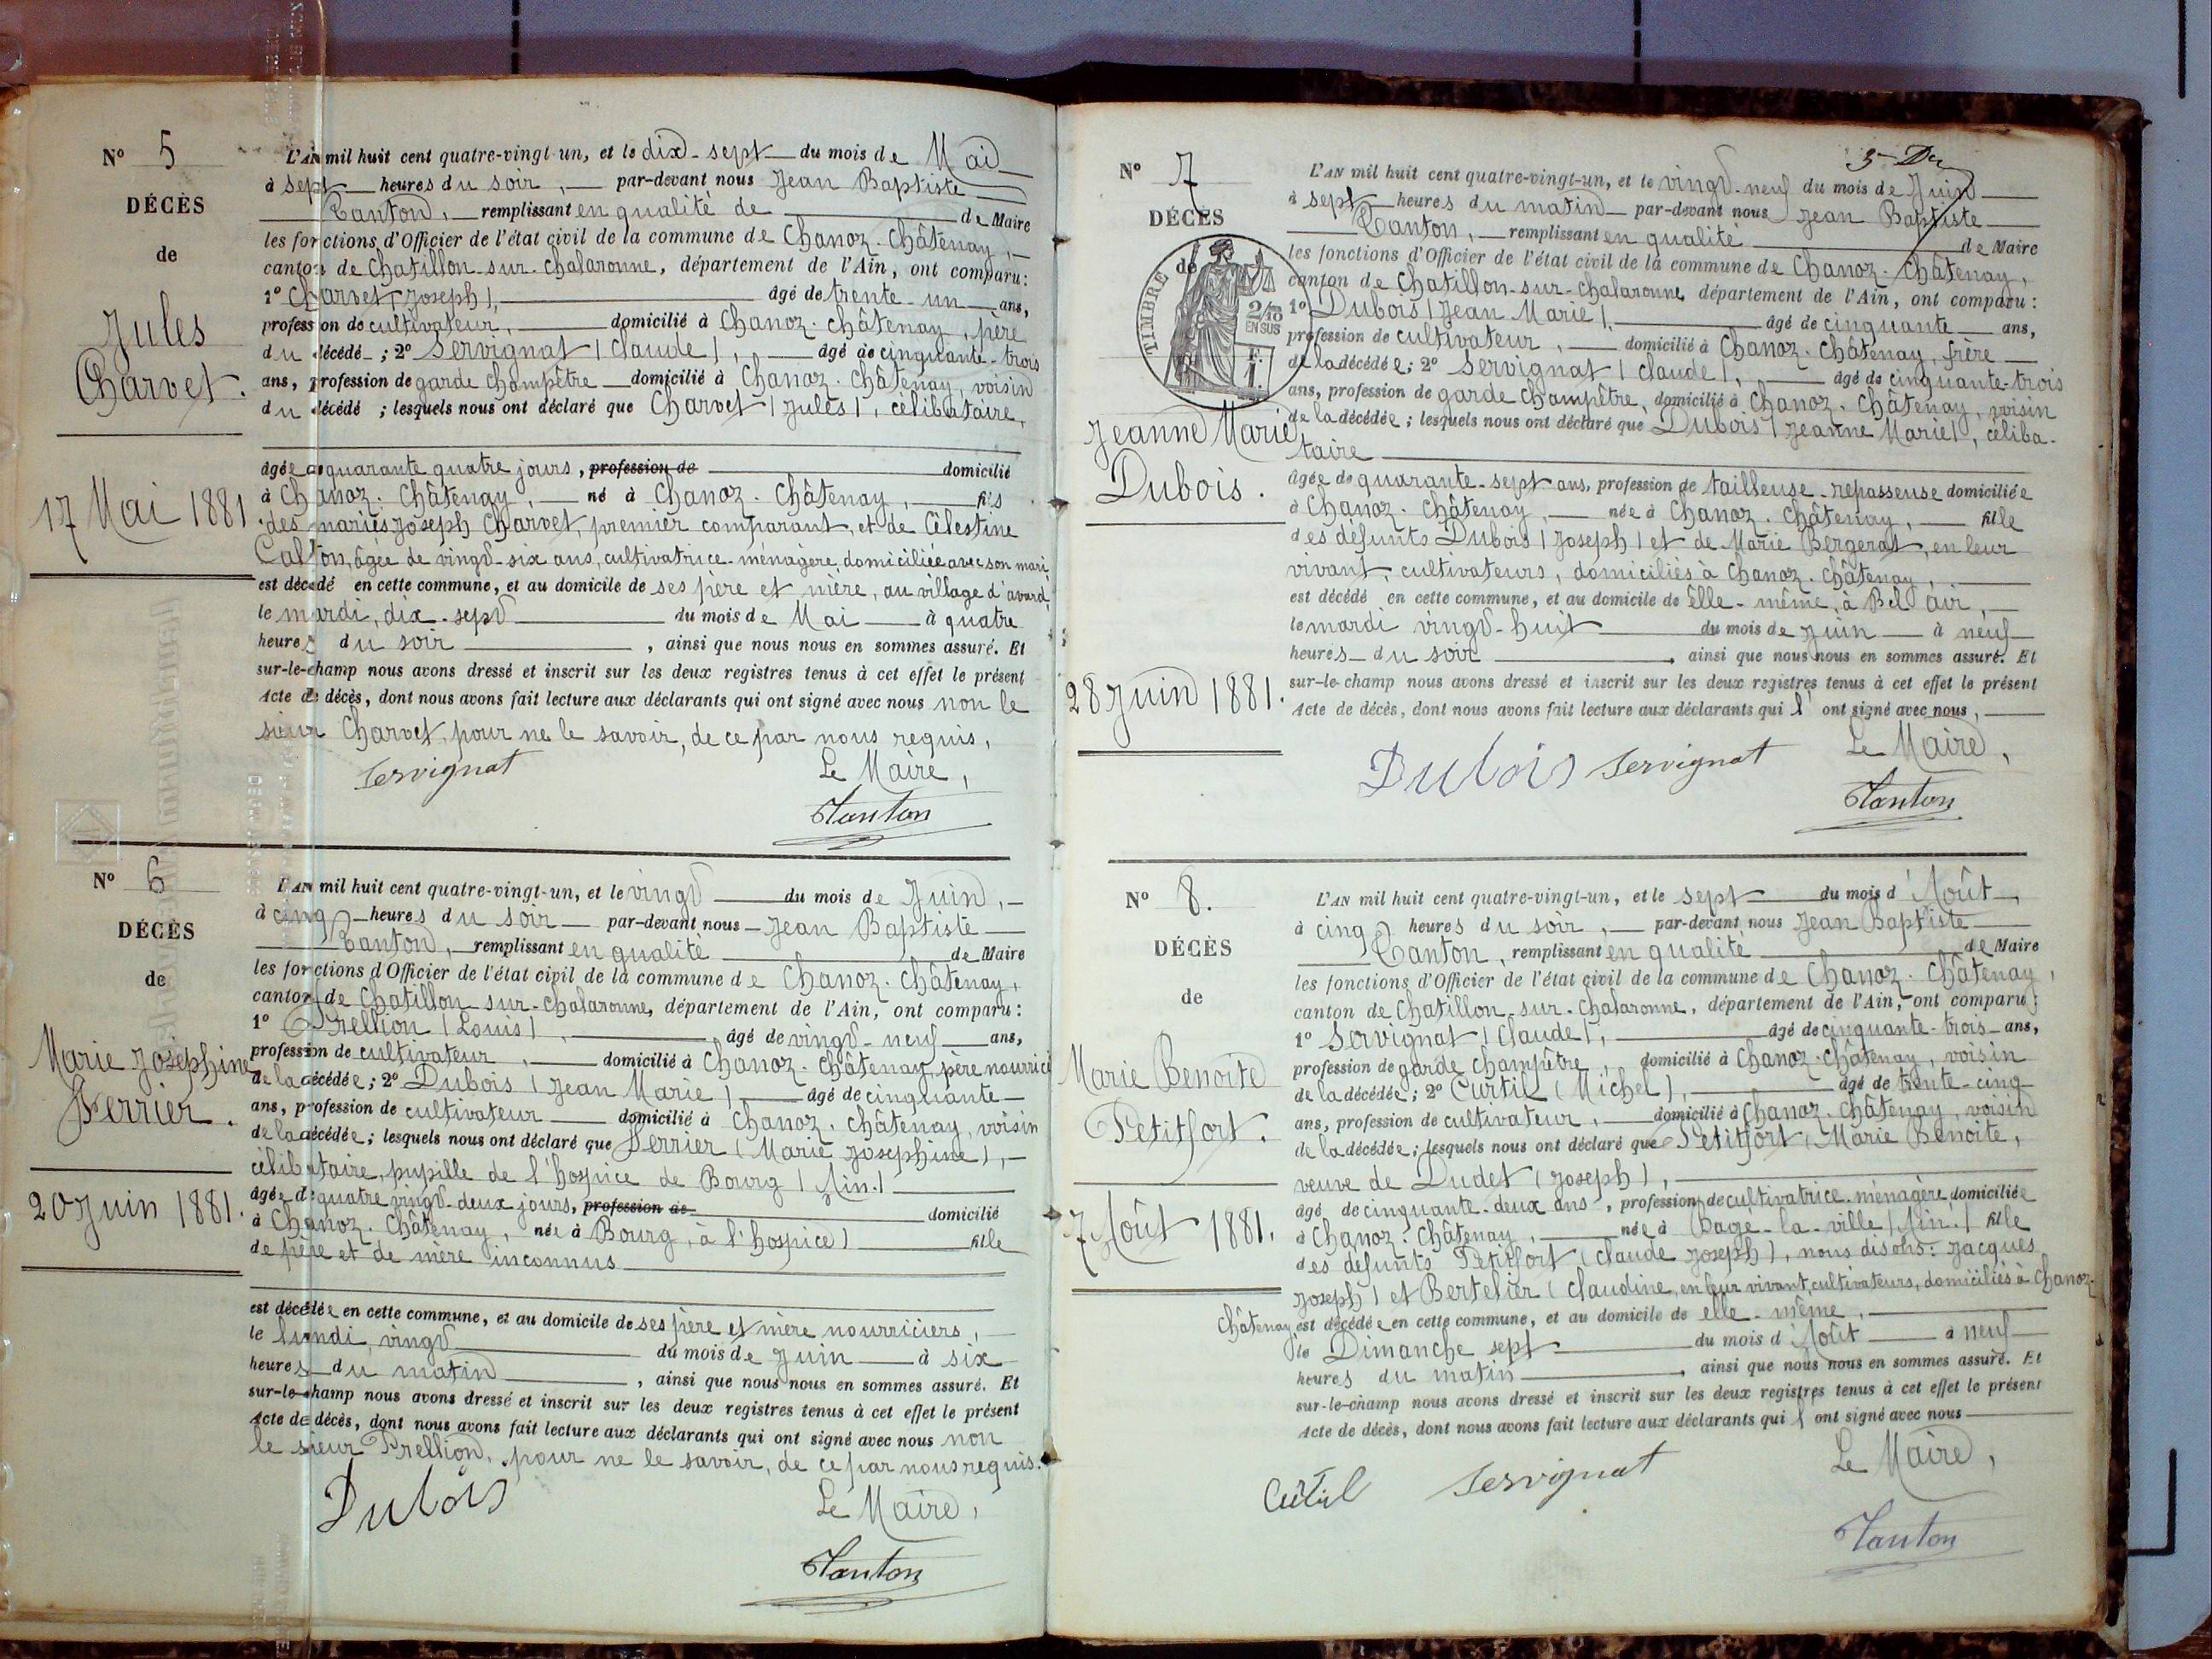 N° 5
DÉCÈS
de
Jules
Charvet.
17 Mai 1881
L'AN mil huit cent quatre-vingt-un, et le dix-sept du mois de Mai
à sept heures du soir, par-devant nous Jean Baptiste
Tanton, remplissant en qualité de de Maire
les fonctions d'Officier de l'état civil de la commune de Chanoz-Châtenay,
canton de Chatillon-sur-Chalaronne, département de l'Ain, ont comparu:
1° Charvet (Joseph), âgé de trente-un ans,
profession de cultivateur, domicilié à Chanoz-Châtenay, père
du décédé; 2° Servignat (Claude), âgé de cinquante-trois
ans, profession de garde champêtre domicilié à Chanoz-Châtenay, voisin
du décédé; lesquels nous ont déclaré que Charvet (Jules), célibataire,
âgée de quarante quatre jours, profession de domicilié
à Chanoz-Châtenay, né à Chanoz-Châtenay, fils
des mariés Joseph Charvet, premier comparant, et de Célestine
âgée de vingt-six ans, cultivatrice-ménagère, domiciliée avec son mari,
est décédé en cette commune, et au domicile de ses père et mère, au village d'avard,
le mardi, dix-sept du mois de Mai à quatre
heures du soir, ainsi que nous nous en sommes assuré. Et
sur-le-champ nous avons dressé et inscrit sur les deux registres tenus à cet effet le présent
Acte de décès, dont nous avons fait lecture aux déclarants qui ont signé avec nous non le
sieur Charvet, pour ne le savoir, de ce par nous requis,
Servignat Le Maire,
Tanton
N° 6
DÉCÈS
de
Marie Joséphine
Perrier.
20 Juin 1881.
L'AN mil huit cent quatre-vingt-un, et le vingt du mois de Juin,
à cinq heures du soir par-devant nous Jean Baptiste
Tanton, remplissant en qualité de Maire
les fonctions d'Officier de l'état civil de la commune de Chanoz-Châtenay,
canton de Chatillon-sur-Chalaronne, département de l'Ain, ont comparu:
1° Prellion (Louis), âgé de vingt-neuf ans,
profession de cultivateur, domicilié à Chanoz-Châtenay, père nourricié
de la décédée; 2° Dubois (Jean Marie), âgé de cinquante
ans, profession de cultivateur domicilié à Chanoz-Châtenay, voisin
de la décédée; lesquels nous ont déclaré que Perrier (Marie Josephine),
célibataire, pupille de l'hospice de Bourg (Ain.)
âgée de quatre vingt-deux jours, profession de domicilié
à Chanoz-Châtenay, née à Bourg, à l'hospice) fille
de père et de mère inconnus
est décédée en cette commune, et au domicile de ses père et mère nourriciers,
le lundi, vingt du mois de Juin à six
heures du matin, ainsi que nous nous en sommes assuré. Et
sur-le-champ nous avons dressé et inscrit sur les deux registres tenus à cet effet le présent
Acte de décès, dont nous avons fait lecture aux déclarants qui ont signé avec nous non
le sieur Prellion, pour ne le savoir, de ce par nous requis.
Dubois Le Maire,
Tanton
N° 7
DÉCÈS
de
TIMBRE
2/10
EN SUS
F.
1.
Jeanne Marie
Dubois.
28 Juin 1881.
L'AN mil huit cent quatre-vingt-un, et le vingt-neuf du mois de Juin
à sept heures du matin par-devant nous Jean Baptiste
Tanton, remplissant en qualité de Maire
les fonctions d'Officier de l'état civil de la commune de Chanoz-Châtenay,
canton de Chatillon-sur-Chalaronne, département de l'Ain, ont comparu:
1° Dubois (Jean Marie), âgé de cinquante ans,
profession de cultivateur, domicilié à Chanoz-Châtenay, frère
de la décédée; 2° Servignat (Claude), âgé de cinquante-trois
ans, profession de garde champêtre, domicilié à Chanoz-Châtenay, voisin
de la décédée; lesquels nous ont déclaré que Dubois (Jeanne Marie), céliba-
taire
âgée de quarante-sept ans, profession de tailleuse-repasseuse domiciliée
à Chanoz-Châtenay, née à Chanoz-Châtenay, fille
des défunts Dubois (Joseph) et de Marie Bergerat, en leur
vivant, cultivateurs, domiciliés à Chanoz-Châtenay,
est décédé en cette commune, et au domicile de elle-même, à Bel air,
le mardi vingt-huit du mois de Juin à neuf
heures du soir, ainsi que nous nous en sommes assuré. Et
sur-le-champ nous avons dressé et inscrit sur les deux registres tenus à cet effet le présent
Acte de décès, dont nous avons fait lecture aux déclarants qui l'ont signé avec nous,
Dubois Servignat Le Maire,
Tanton
N° 8.
DÉCÈS
de
Marie Benoite
Petitfort.
7 Août 1881.
L'AN mil huit cent quatre-vingt-un, et le sept du mois d'Août,
à cinq heures du soir, par-devant nous Jean Baptiste
Tanton, remplissant en qualité de Maire
les fonctions d'Officier de l'état civil de la commune de Chanoz-Châtenay,
canton de Chatillon-sur-Chalaronne, département de l'Ain, ont comparu:
1° Servignat (Claude), âgé de cinquante-trois ans,
profession de garde champêtre, domicilié à Chanoz-Châtenay, voisin
de la décédée; 2° Curtil (Michel), âgé de trente-cinq
ans, profession de cultivateur, domicilié à Chanoz-Châtenay, voisin
de la décédée; lesquels nous ont déclaré que Petitfort (Marie Benoite,
veuve de Dudet (Joseph),
âgé de cinquante-deux ans, profession de cultivatrice-ménagère domiciliée
à Chanoz-Châtenay, née à Bage-la-ville (Ain.) fille
des défunts Petitfort (Claude Joseph), nous disons: Jacques
Joseph) et Bertelier (Claudine, en leur vivant, cultivateurs, domiciliés à Chanoz-
Châtenay, est décédée en cette commune, et au domicile de elle-même,
le Dimanche sept du mois d'Août à neuf
heures du matin, ainsi que nous nous en sommes assuré. Et
sur-le-champ nous avons dressé et inscrit sur les deux registres tenus à cet effet le présent
Acte de décès, dont nous avons fait lecture aux déclarants qui l'ont signé avec nous
Curtil Servignat Le Maire,
Tanton